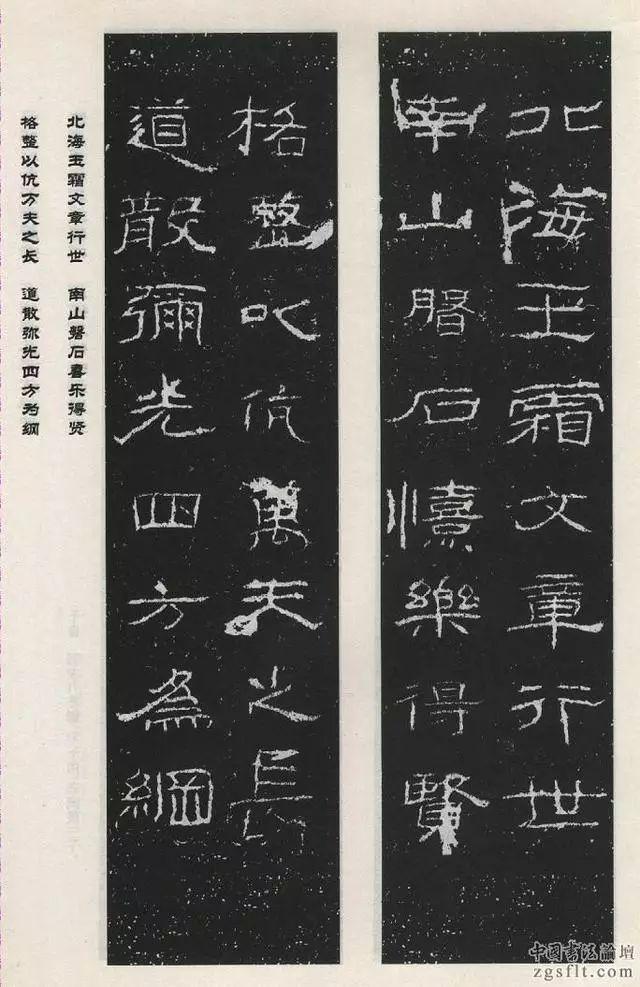 北海玉霜文章行世
南山石憙樂得賢
格整以伉萬夫之長
道散彌光四方為綱
北海玉霜文章行世 南山磐石喜乐得贤
格整以伉万夫之长 道散弥光四方为纲
中国书法論壇
zgsflt.com